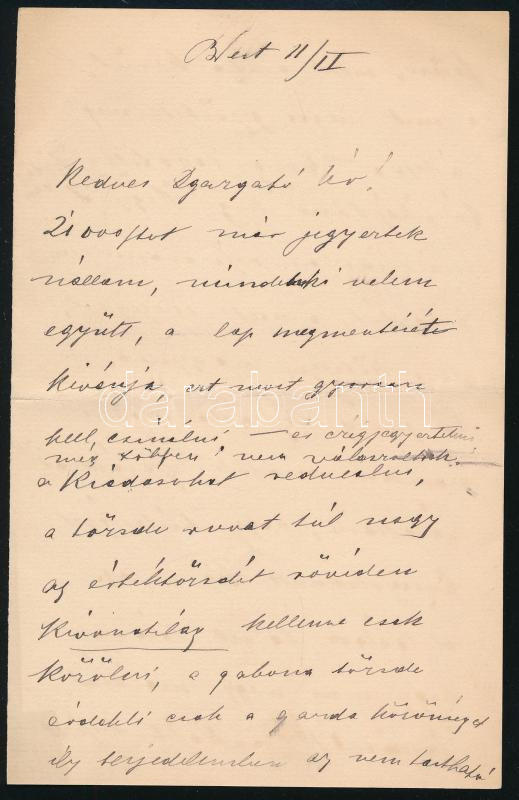 Bpest 11/II
Kedves Igazgató Úr!
21000 ftot már jegyeztek
nállam, mindenki velem
együtt, a lap megmentését
kivánja, ezt most gyorsan
kell csinálni — és
még többen nem válaszoltak.
a Kiadásokat redukálni,
a tőzsde rovat túl nagy
az értéktőzsdét röviden
kivonatilag kellene csak
közölni, a gabona tőzsde
érdekli csak a gazda közönséget
ily terjedelemben az nem tartható
darabanth